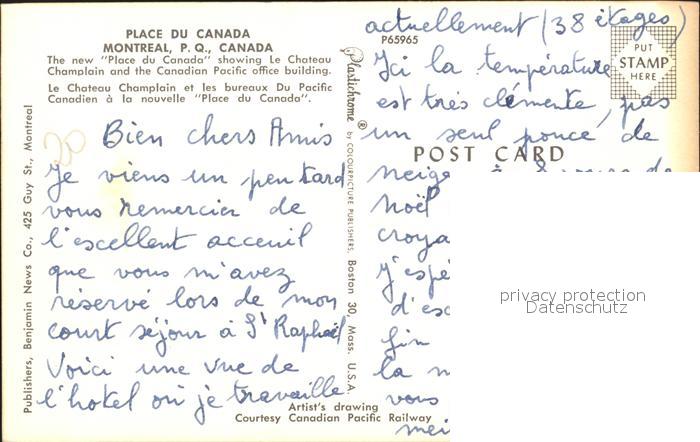 PLACE DU CANADA
MONTREAL, P. Q., CANADA
The new "Place du Canada" showing Le Chateau
Champlain and the Canadian Pacific office building.
Le Chateau Champlain et les bureaux Du Pacific
Canadien à la nouvelle "Place du Canada".
20
Bien chers Amis
Je viens un peu tard
vous remercier de
l'excellent acceuil
que vous m'avez
réservé lors de mon
court séjour à St Raphaël
Voici une vue de
l'hotel où je travaille
Artist's drawing
Courtesy Canadian Pacific Railway
Publishers, Benjamin News Co., 425 Guy St., Montreal
Plastichrome ® by COLOURPICTURE PUBLISHERS, Boston 30, Mass. U.S.A.
P65965
PUT
STAMP
HERE
POST CARD
actuellement (38 étages)
Ici la température
est très clémente, pas
un seul pouce de
neige à jours de
Noël
croya
J'espé
d'exc
fin
la
vous
mei
privacy protection
Datenschutz